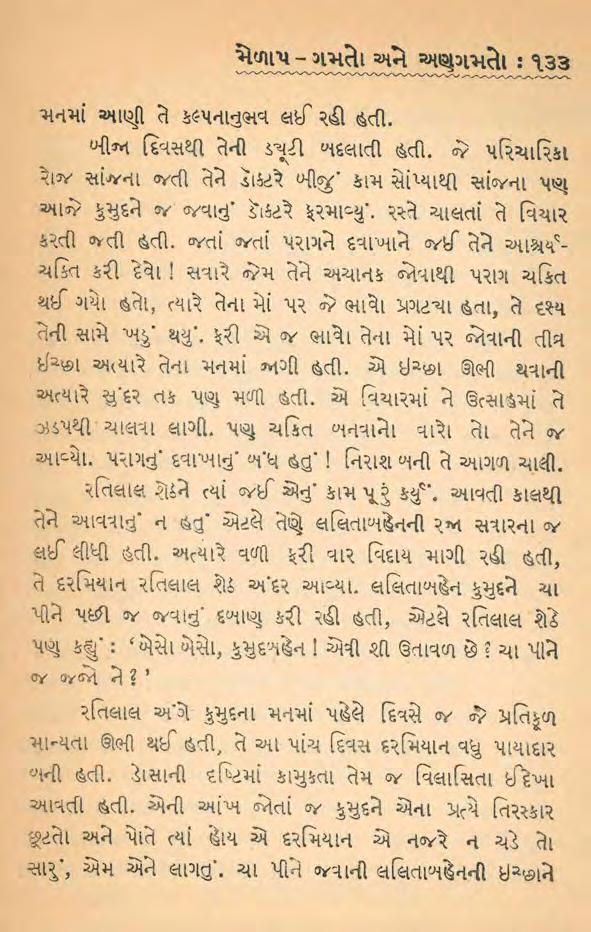 મેળાપ – ગમતો અને અણગમતો : ૧૩૩
મનમાં આણી તે કલ્પનાનુભવ લઈ રહી હતી.
બીજા દિવસથી તેની ડ્યૂટી બદલાતી હતી. જે પરિચારિકા
રોજ સાંજના જતી તેને ડૉક્ટરે બીજું કામ સોંપ્યાથી સાંજના પણ
આજે કુમુદને જ જવાનું ડૉક્ટરે ફરમાવ્યું. રસ્તે ચાલતાં તે વિચાર
કરતી જતી હતી. જતાં જતાં પરાગને દવાખાને જઈ તેને આશ્ચર્ય-
ચકિત કરી દેવો ! સવારે જેમ તેને અચાનક જોવાથી પરાગ ચકિત
થઈ ગયો હતો, ત્યારે તેના મોં પર જે ભાવો પ્રગટ્યા હતા, તે દશ્ય
તેની સામે ખડું થયું. ફરી એ જ ભાવો તેના મોં પર જોવાની તીવ્ર
ઈચ્છા અત્યારે તેના મનમાં જાગી હતી. એ ઇચ્છા ઊભી થવાની
અત્યારે સુંદર તક પણ મળી હતી. એ વિચારમાં ને ઉત્સાહમાં તે
ઝડપથી ચાલવા લાગી. પણ ચકિત બનવાનો વારો તો તેને જ
આવ્યો. પરાગનું દવાખાનું બંધ હતું ! નિરાશ બની તે આગળ ચાલી.
રતિલાલ શેઠને ત્યાં જઈ એનું કામ પૂરું કર્યું. આવતી કાલથી
તેને આવવાનું ન હતું એટલે તેણે લલિતાબહેનની રજા સવારના જ
લઈ લીધી હતી. અત્યારે વળી ફરી વાર વિદાય માગી રહી હતી,
તે દરમિયાન રતિલાલ શેઠ અંદર આવ્યા. લલિતાબહેન કુમુદને ચા
પીને પછી જ જવાનું દબાણ કરી રહી હતી, એટલે રતિલાલ શેઠે
પણ કહ્યું : ‘બેસો બેસો, કુમુદબહેન ! એવી શી ઉતાવળ છે ? ચા પીને
જ જજો ને ? ’
રતિલાલ અંગે કુમુદના મનમાં પહેલે દિવસે જ જે પ્રતિકૂળ
માન્યતા ઊભી થઈ હતી, તે આ પાંચ દિવસ દરમિયાન વધુ પાયાદાર
બની હતી. ડોસાની દષ્ટિમાં કામુકતા તેમ જ વિલાસિતા દેખા
આવતી હતી. એની આંખ જોતાં જ કુમુદને એના પ્રત્યે તિરસ્કાર
છૂટતો અને પોતે ત્યાં હોય એ દરમિયાન એ નજરે ન ચડે તો
સારું, એમ એને લાગતું. ચા પીને જવાની લલિતાબહેનની ઇચ્છાને